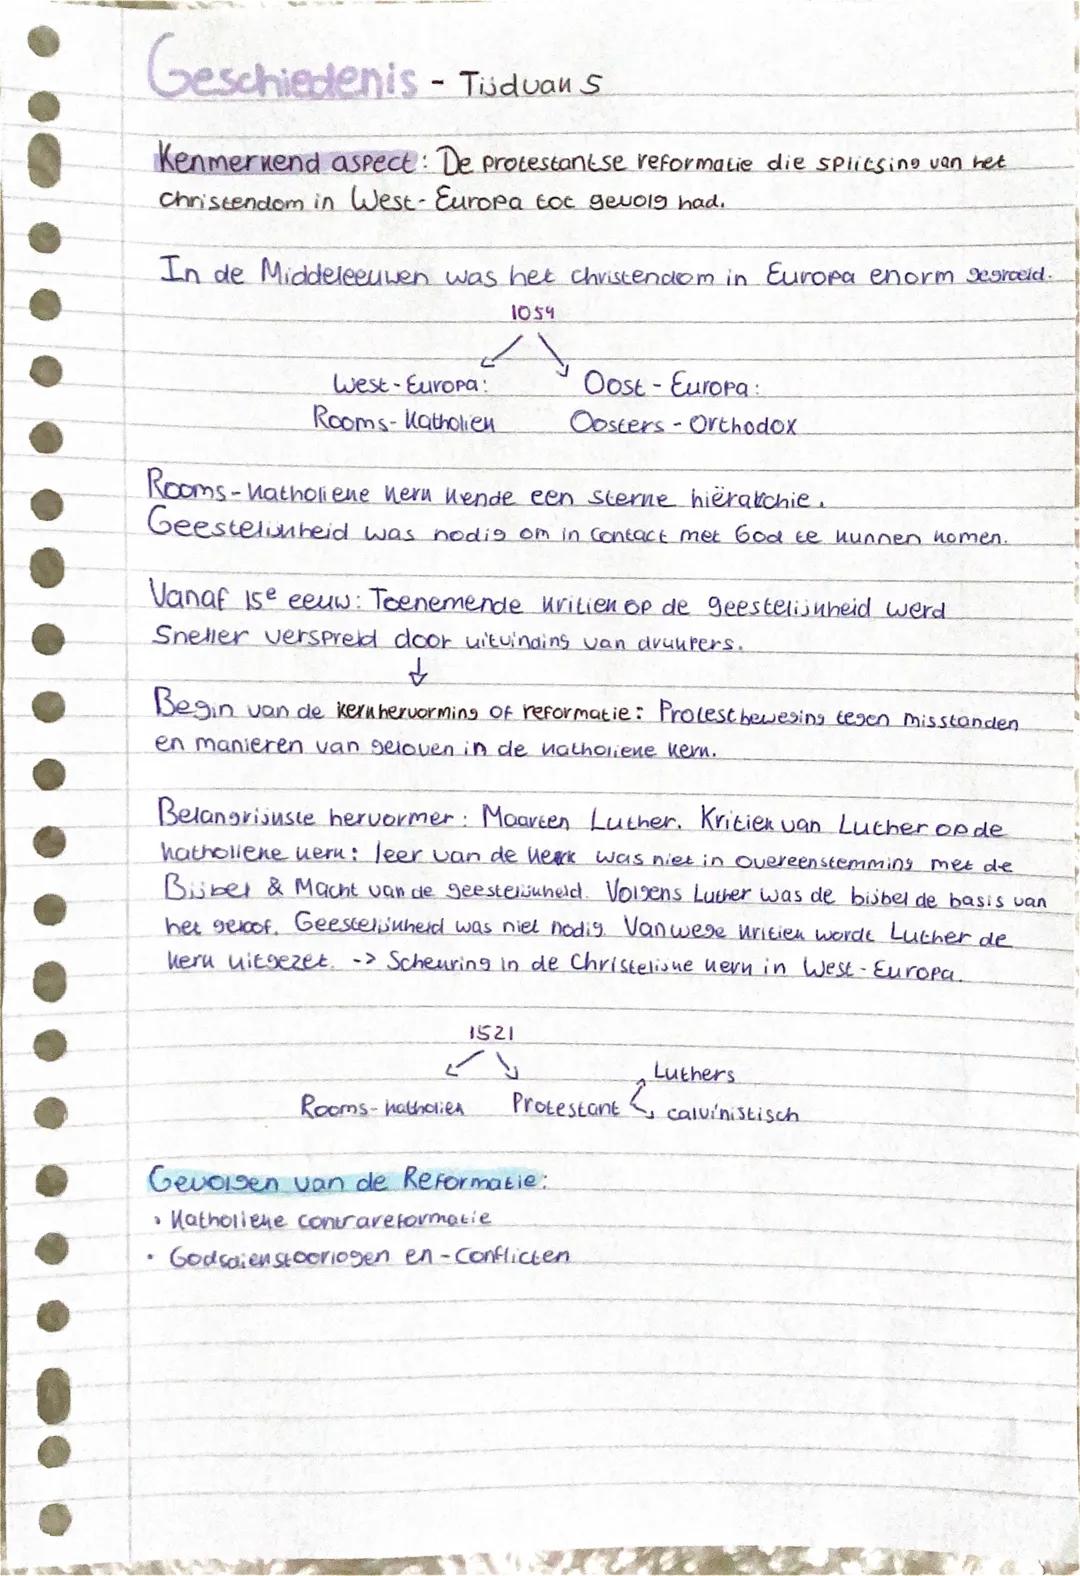 Geschiedenis - Tijdvak 5
Kenmerkend aspect: De protestantse reformatie die splitsing van het
christendom in West-Europa tot gevolg had.
In de Middeleeuwen was het christendom in Europa enorm gegroeid.
1054
West-Europa: Oost-Europa:
Rooms-Katholiek Oosters-Orthodox
Rooms-katholieke kerk kende een sterke hiërarchie.
Geestelijkheid was nodig om in contact met God te kunnen komen.
Vanaf 15e eeuw: Toenemende kritiek op de geestelijkheid werd
Sneller verspreid door uitvinding van drukpers.
↓
Begin van de kerkhervorming of reformatie: Protestbeweging tegen misstanden
en manieren van geloven in de katholieke kerk.
Belangrijkste hervormer: Maarten Luther. Kritiek van Luther op de
katholieke kerk: leer van de kerk was niet in overeenstemming met de
Bijbel & Macht van de geestelijkheid. Volgens Luther was de bijbel de basis van
het geloof. Geestelijkheid was niet nodig. Vanwege kritiek wordt Luther de
kerk uitgezet. -> Scheuring in de Christelijke kerk in West-Europa.
1521
Luthers
Rooms-katholiek Protestant calvinistisch
Gevolgen van de Reformatie:
• Katholieke contrareformatie
• Godsdienstoorlogen en -Conflicten